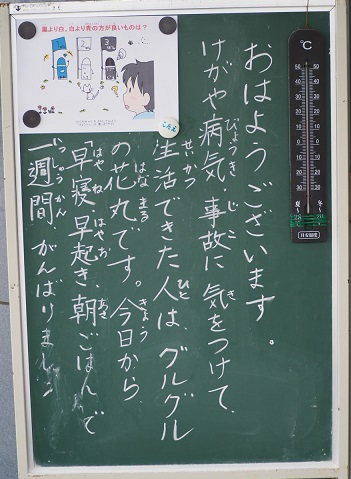 黒より白。白より青の方が良いものは？
こたえ
℃
おはようございます。
けがや病気、事故に気をつけて、
びょうき じこ き
生活できた人は、グルグル
せいかつ ひと
の花丸です。今日から、
はな まる きょう
「早寝早起き、朝ごはん」で
はや ね はや お あさ
一週間 がんばりましょう
いっしゅうかん
夏 冬